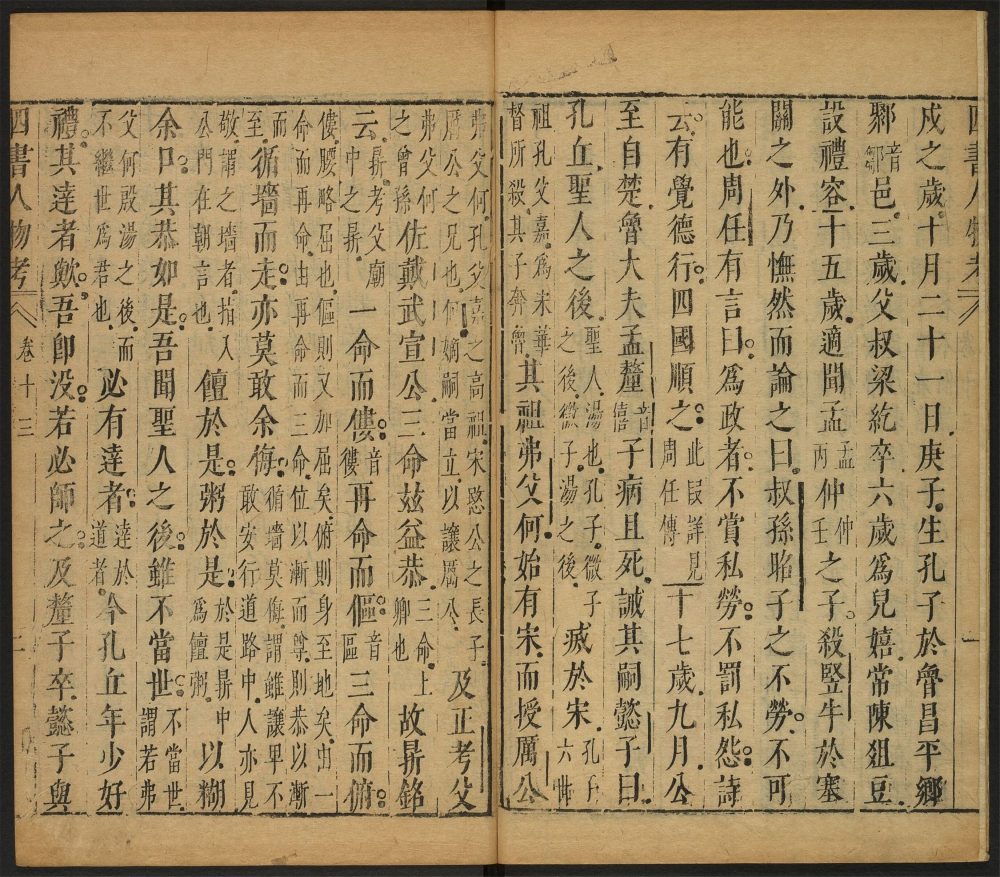 戍之歲十月二十一日庚子生孔子於魯昌平鄉
郰音鄒邑三歲父叔梁紇卒六歲爲兒嬉常陳俎豆
設禮容十五歲適聞孟孟丙仲仲壬之子殺豎牛於塞
關之外乃憮然而論之曰叔孫昭子之不勞不可
能也周任有言曰爲政者不賞私勞不罰私怨詩
云有覺德行四國順之此叚詳見周任傳十七歲九月公
至自楚魯大夫孟釐音僖子病且死誡其嗣懿子曰
孔丘聖人之後聖人湯也孔子微子之後微子湯之後滅於宋孔子六世
祖孔父嘉爲宋華督所殺其子奔魯其祖弗父何始有宋而授厲公
弗父何孔父嘉之高祖宋愍公之長子厲公之兄也何嫡嗣當立以讓厲公及正考父
弗父何之曾孫佐戴武宣公三命兹益恭三命上卿也故鼎銘
云鼎考父廟中之鼎一命而僂音僂再命而傴音區三命而俯
僂腰略屈也傴則又加屈矣俯則身至地矣由一命而再命由再命而三命位以漸而尊則恭以漸而
至循墻而走亦莫敢余侮循墻莫侮謂雖讓卑不敢安行道路中人亦見
敬謂之墻者指入公門在朝言也饘於是粥於是於是鼎中爲饘粥以糊
余口其恭如是吾聞聖人之後雖不當世不當世謂若弗
父何殷湯之後而不繼世爲君也必有達者達於道者今孔丘年少好
禮其達者歟吾卽没若必師之及釐子卒懿子與
四書人物考 卷十三 二